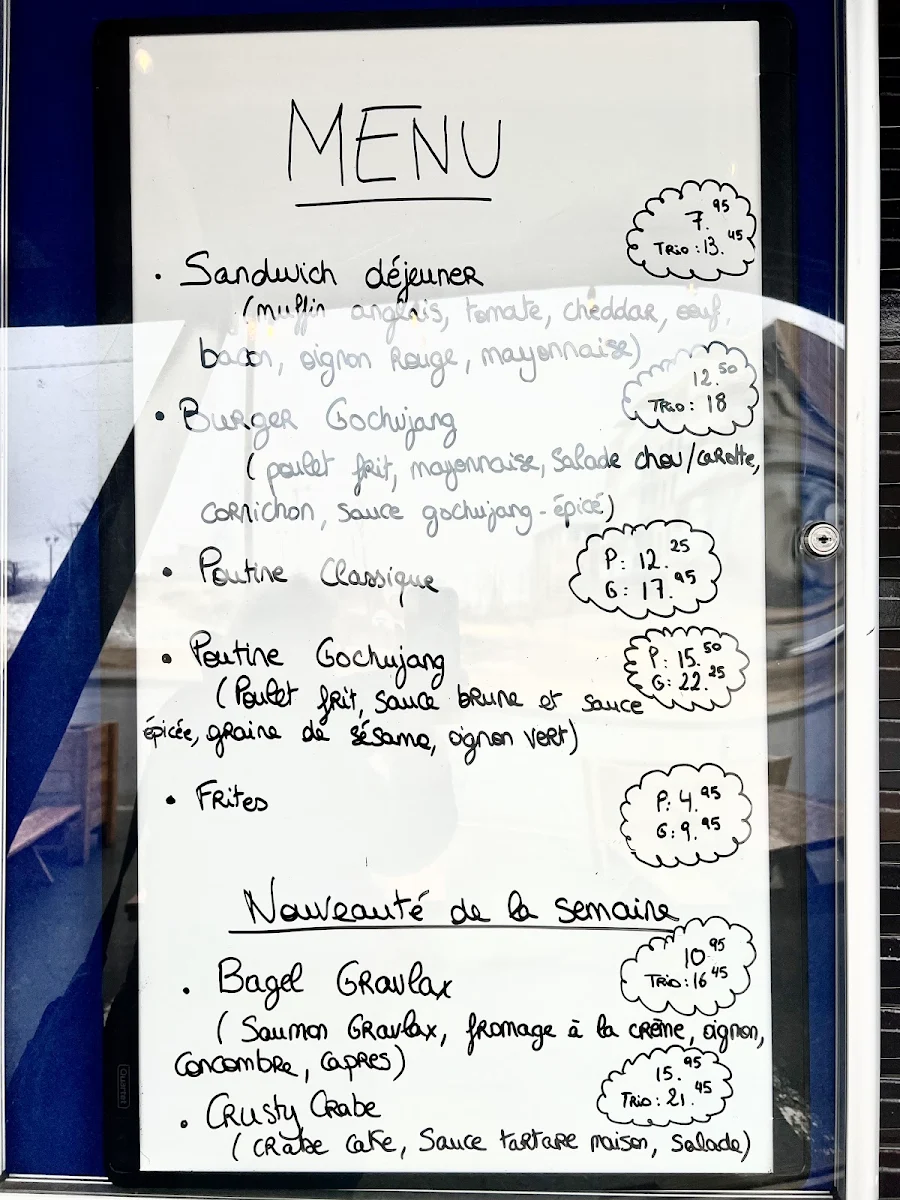 MENU
7.95
Trio: 13.45
• Sandwich déjeuner
(muffin anglais, tomate, cheddar, oeuf,
bacon, oignon Rouge, mayonnaise)
12.50
Trio: 18
• Burger Gochujang
(poulet frit, mayonnaise, Salade chou/carotte,
cornichon, sauce gochujang - épicé)
• Poutine Classique
P: 12.25
G: 17.95
• Poutine Gochujang
P: 15.50
G: 22.25
(Poulet frit, sauce brune et sauce
épicée, graine de sésame, oignon vert)
• Frites
P: 4.95
G: 9.95
Nouveauté de la semaine
10.95
Trio: 16.45
• Bagel Gravlax
(Saumon Gravlax, fromage à la crème, oignon,
concombre, capres)
15.95
Trio: 21.45
• Crusty Crabe
(crabe cake, Sauce tartare maison, Salade)
Quartet